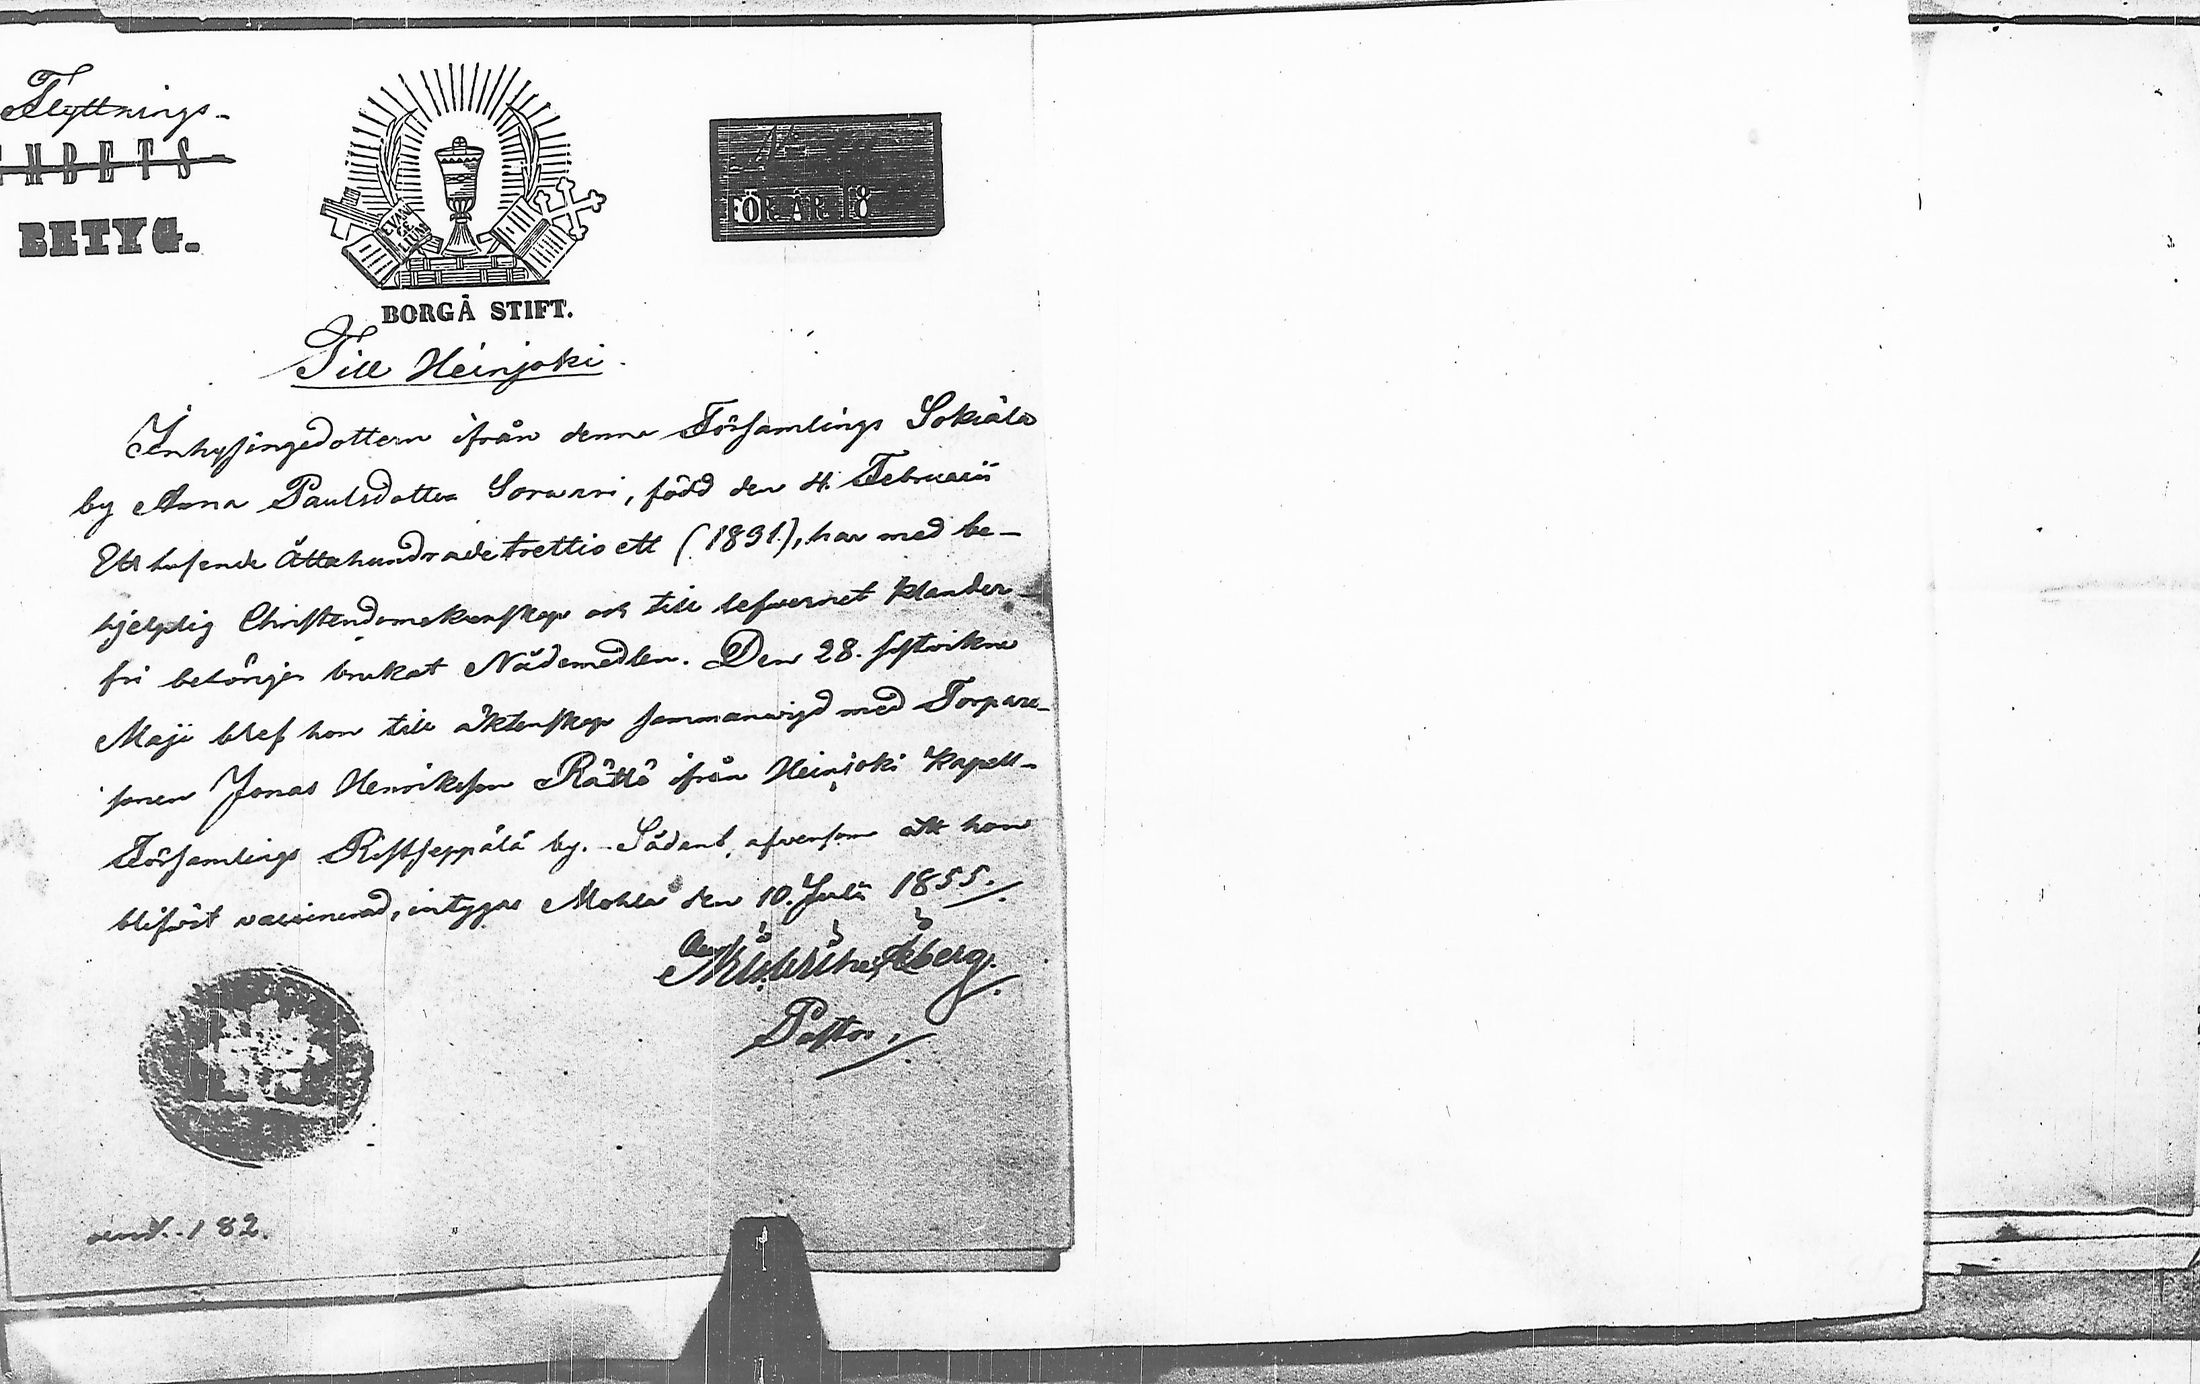 Flyttnings-
EMBETS
BETYG.
EVAN
GE
LIUM
BORGÅ STIFT.
N:o
FÖR ÅR 18
Till Heinjoki.
Inhysingedottern ifrån denna Församlings Sokiala
by Anna Paulsdotter Sorvari, född den 4. Februarii
Ett tusende Åttahundrade trettio ett (1831), har med be-
hjelplig Christendomskunskap och till lefvernet klander-
fri behörigen brukat Nådemedlen. Den 28. sistvikne
Maji blef hon till äktenskap sammanvigd med Torpare-
sonen Jonas Henriksson Rättö ifrån Heinjoki Kapell-
Församlings Ristseppälä by. Sådant, äfvensom att hon
blifvit vaccinerad, intygas Mohla den 10. Julii 1855.
Åberg.
Pastor.
182.